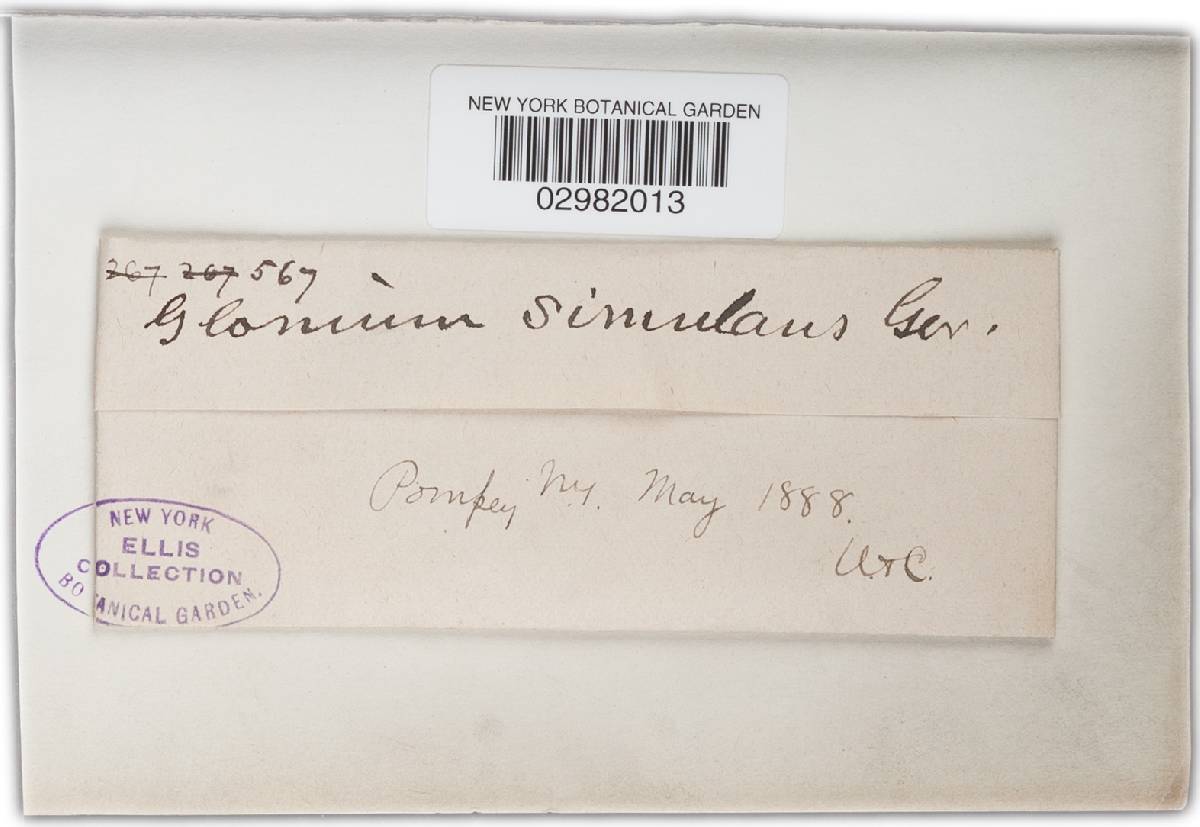 NEW YORK BOTANICAL GARDEN
02982013
267 267 567
Glonium Simulans Ger.
Pompey N.Y. May 1888.
U.&C.
NEW YORK
ELLIS
COLLECTION
BOTANICAL GARDEN.